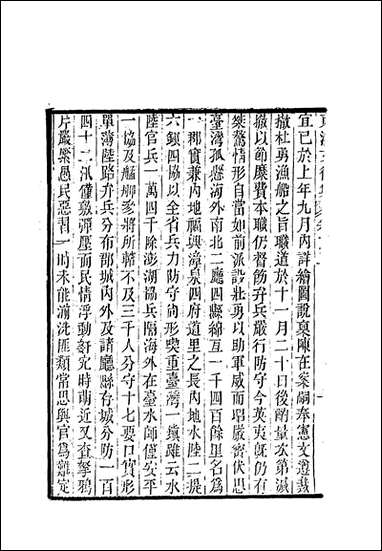 宜已於上年九月內詳繪圖說稟陳在案嗣奉憲文遵裁
撤壯勇漁船之旨職道於十一月二十日後酌量次第減
撤以節糜費本職仍督飭弁兵嚴行防守今英夷既仍有
桀驁情形自當如前派設壯勇以助軍威而昭嚴密伏思
臺灣孤懸海外南北二廳四縣綿亙一千四百餘里名爲
一郡實兼內地福興漳泉四府道里之長內地水陸二提
六鎭四協以全省兵力防守尙形喫重臺灣一鎭雖云水
陸官兵一萬四千除澎湖協兵隔海外在臺水師僅安平
一協及艋舺參將所轄不及三千人分守十七要口實形
單薄陸路弁兵分布郡城內外及諸廳縣台城分防一百
四十二汛僅敷彈壓而民情浮動奸宄時萌近又查拏鴉
片嚴禁愚民惡習一時未能湔洗匪類常思與官爲難定